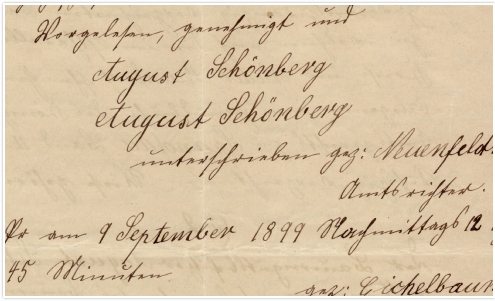 Vorgelesen, genehmigt und
August Schönberg
August Schönberg
unterschrieben gez: Neuenfeldt
Amtsrichter.
Pr am 9 September 1899 Nachmittags 12
45 Minuten
gez: Eichelbaum